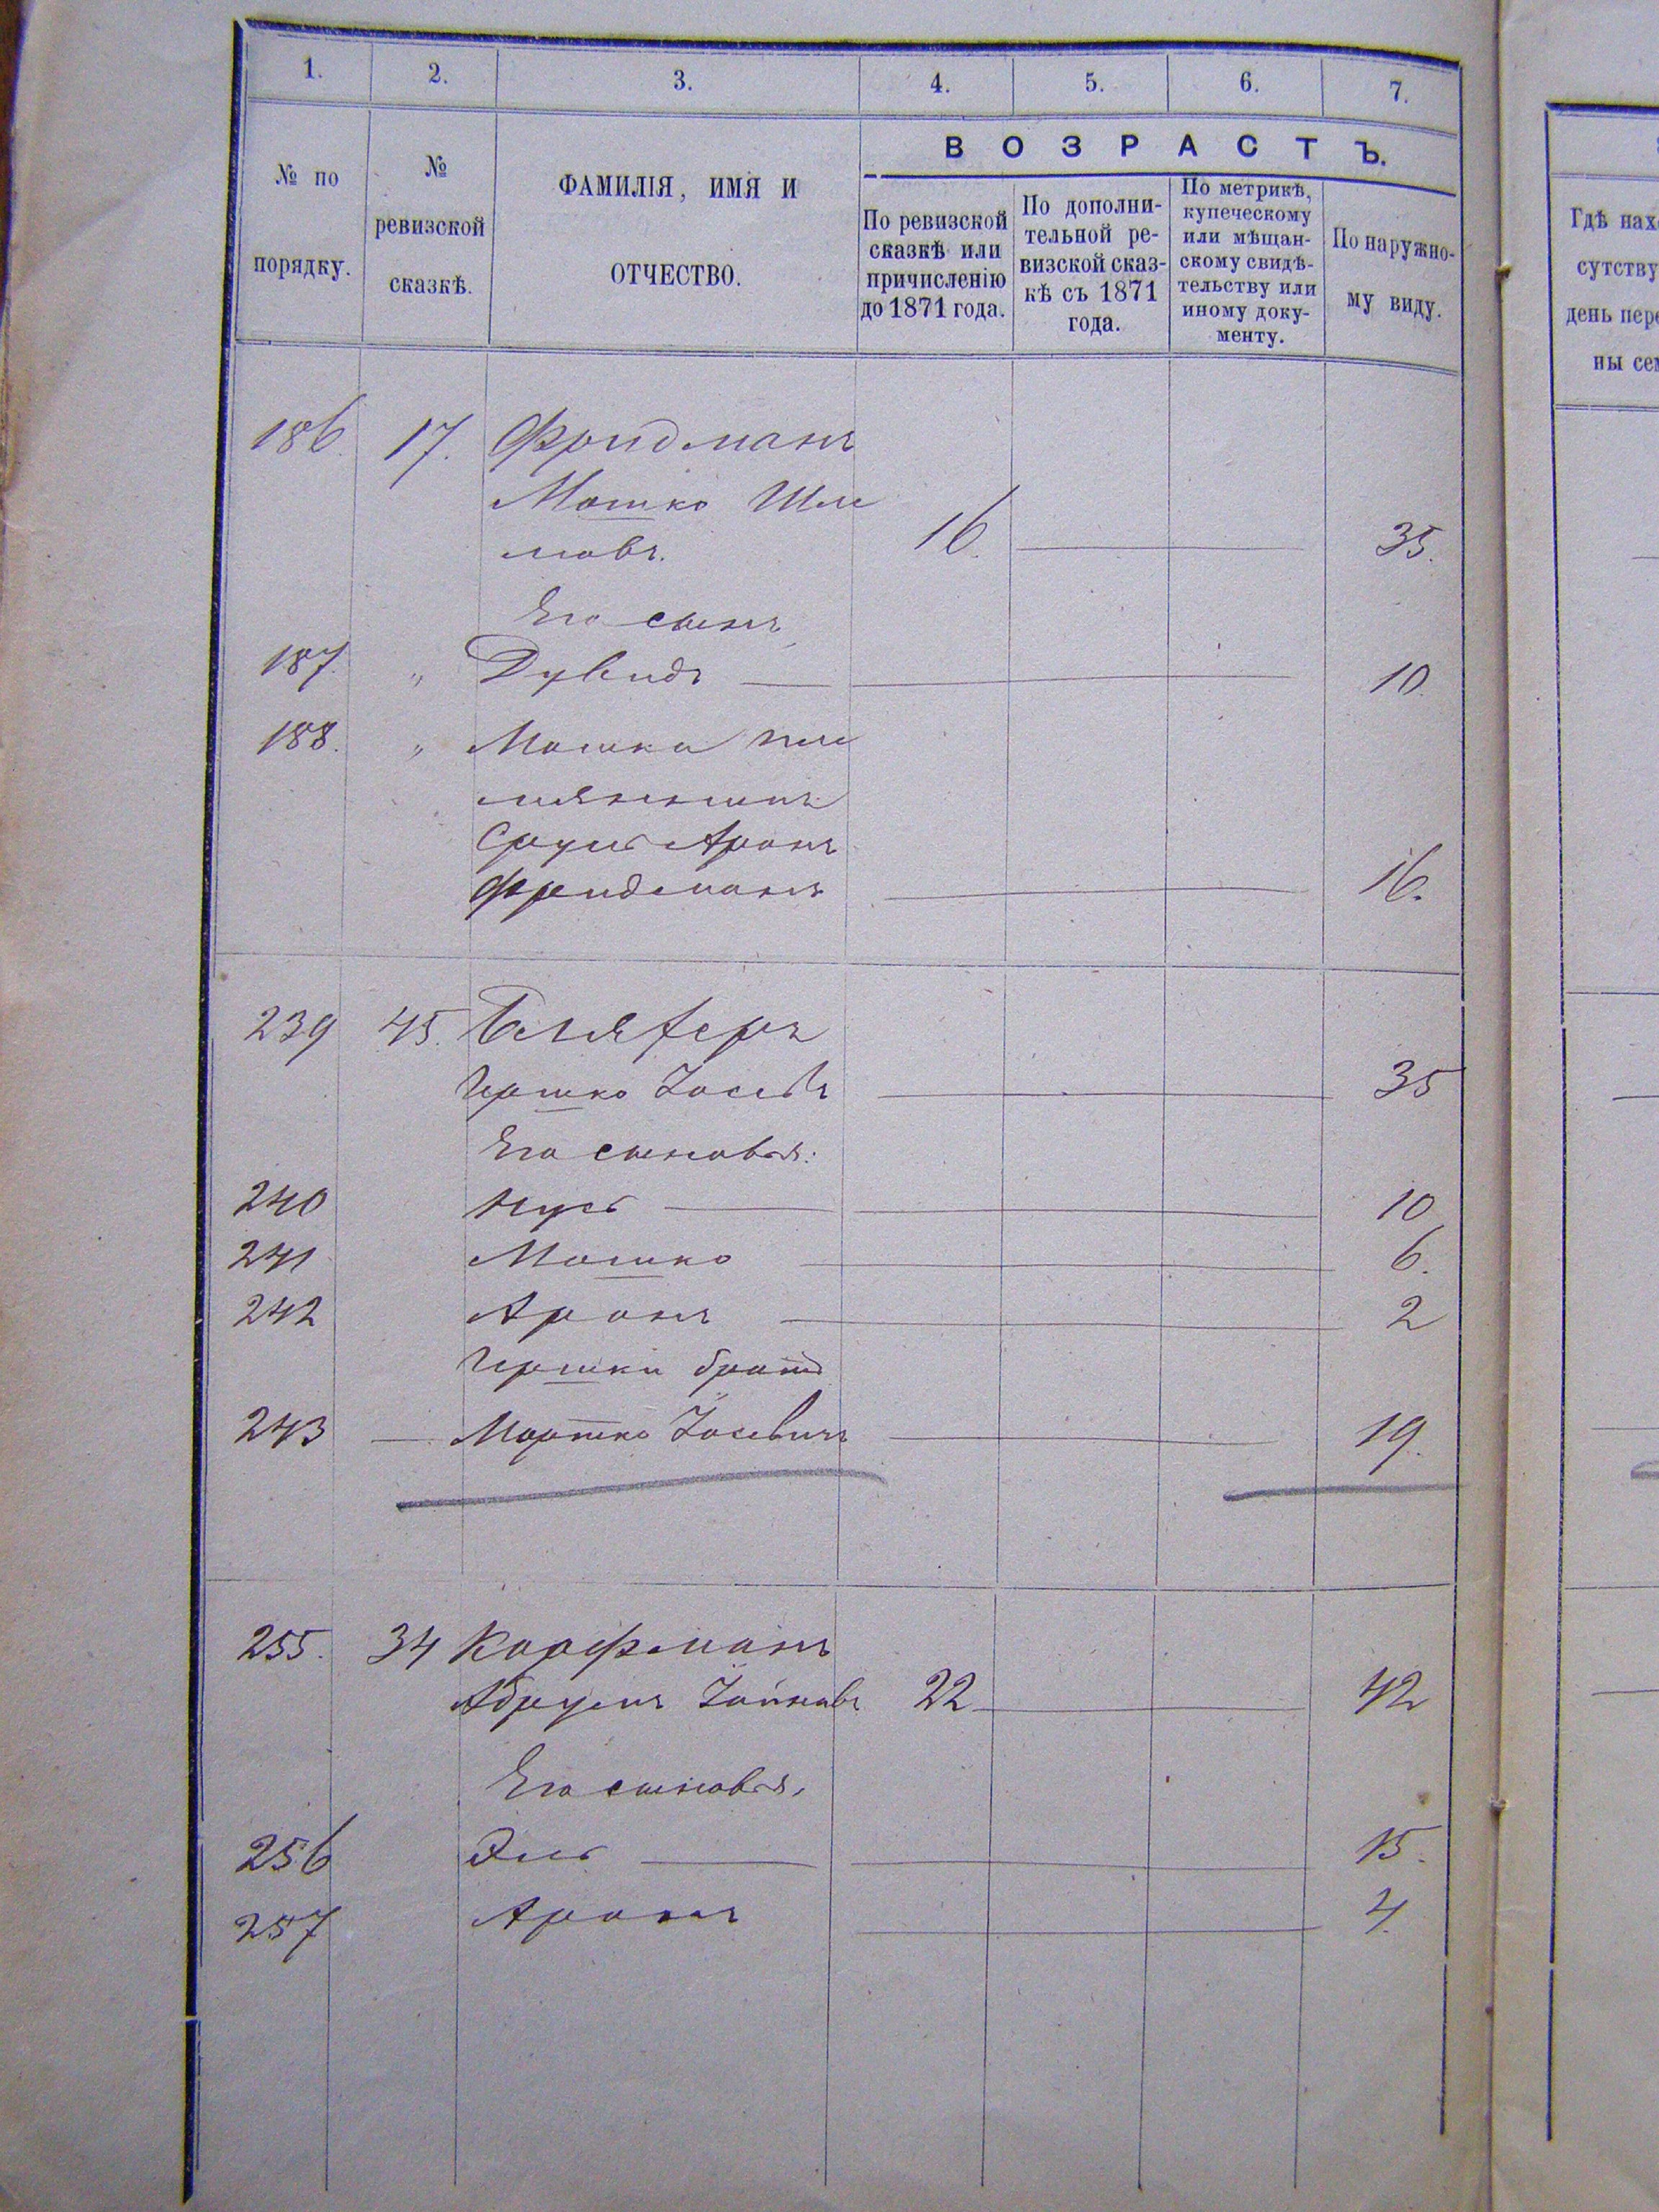 1. 2. 3. 4. 5. 6. 7.
№ по порядку.
№ ревизской сказкѣ.
ФАМИЛІЯ, ИМЯ И ОТЧЕСТВО.
ВОЗРАСТЪ.
По ревизской сказкѣ или причисленію до 1871 года.
По дополнительной ревизской сказкѣ съ 1871 года.
По метрикѣ, купеческому или мѣщанскому свидѣтельству или иному документу.
По наружному виду.
Гдѣ нах
сутству
день пере
ны сем
186. 17. Фридманъ
Мошко Шле
мовъ. 16. 35.
Его сынъ
187. " Дувидъ 10.
188. " Мошки пле
мянникъ
Сруль Аронъ
Фридманъ 16.
239 45. Бляферъ
Гершко Іос 35
Его сыновья:
240 Нусь 10
241 Мошко 6.
242 Аронъ 2
Гершки братъ
243 — Мортко Іосевичъ 19.
255. 34 Карфманъ
Абрумъ 22 42
Его сыновья,
256 Эль 15.
257 Аронъ 4.